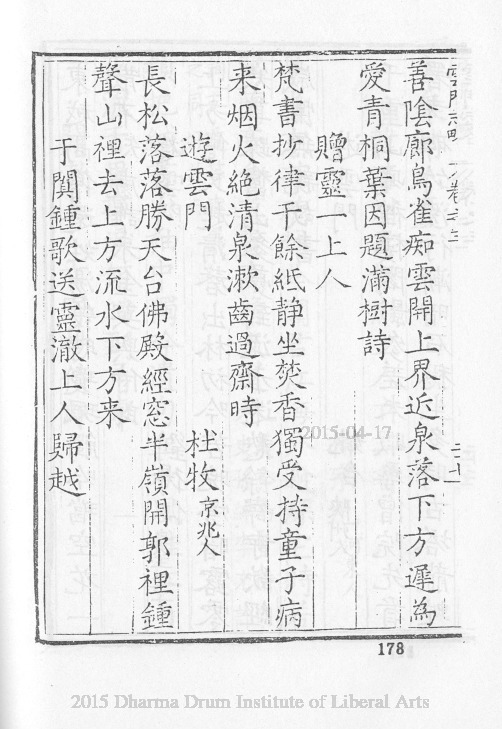 雲門志略 卷之三
善陰廊鳥雀痴雲開上界近泉落下方遲為
愛青桐葉因題滿樹詩
贈靈一上人
梵書抄律千餘紙静坐焚香獨受持童子病
来烟火絶清泉漱齒過齋時
遊雲門 杜牧京兆人
長松落落勝天台佛殿經窓半嶺開郭裡鍾
聲山裡去上方流水下方来
于闐鍾歌送靈澈上人歸越
2015-04-17
178
2015 Dharma Drum Institute of Liberal Arts